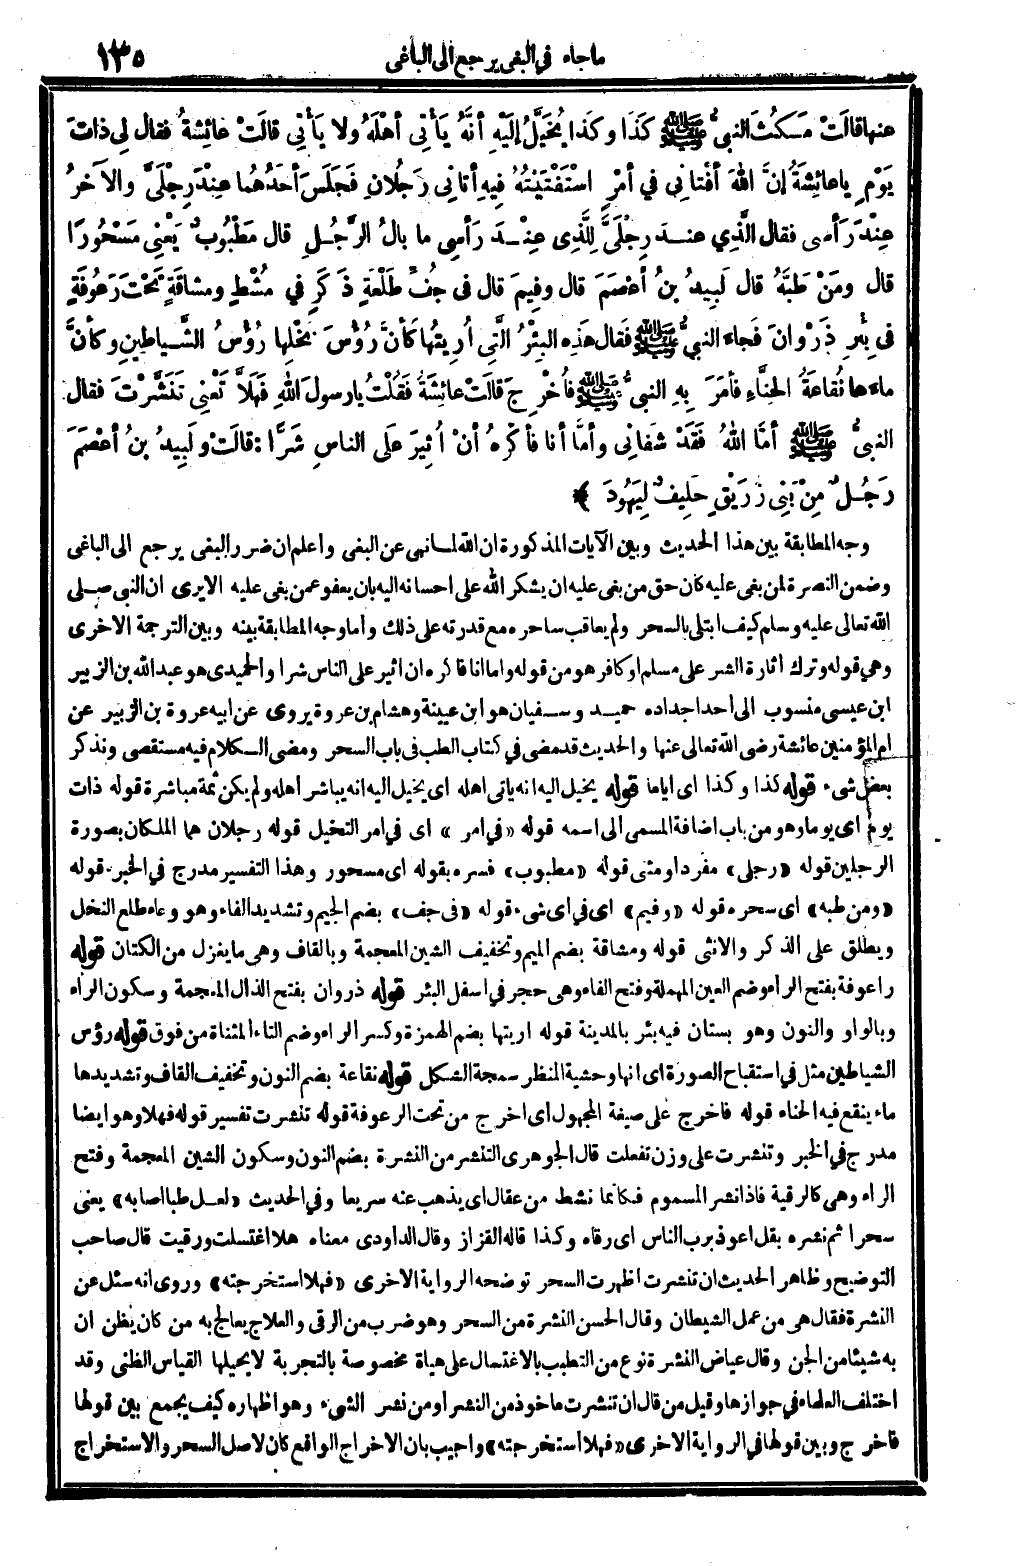 ما جاء في البغى يرجع الى الباغى ١٣٥
عنها قالَتْ مَـكُثَ النبيُّ ﷺ كَذَا وكَذَا يُخَيَّلُ إلَيْهِ أنَّهُ يَأْتِي أهْلَهُ ولا يَأْتِي قالَتْ عائِشةُ فقال لِي ذاتَ
يَوْمٍ يا عائِشَةُ إنَّ اللهَ أفْتانِي في أمْرٍ اسْتَفْتَيْتُهُ فِيهِ أتانِي رَجُلانِ فَجَلَسَ أحَدُهُما عِنْدَ رِجْلَيَّ والآخَرُ
عِنْدَ رَأسى فقال الَّذِي عنـد رِجْلَيَّ لِلَّذِى عِنْـدَ رَأسِى ما بالُ الرَّجُـلِ قال مَطْبُوبٌ يَعْنِى مَسْحُورًا
قال ومَنْ طَبَّهُ قال لَبِيدُ بنُ أعْصَمَ قال وفِيمَ قال فى جُفِّ طَلْعَةٍ ذَكَرٍ في مُشْطٍ ومشاقَةٍ تَحْتَ رَعُوفَةٍ
فى بِئْرِ ذَرْوانَ فَجاءَ النبيُّ ﷺ فَقال هَذِهِ البِئْرُ الَّتِي أُرِيتُها كَأنَّ رُؤُسَ نَخْلِها رُؤُسُ الشَّـياطينِ وكأنَّ
ماءَها نُقاعَةُ الحِنَّاءِ فأمَرَ بِهِ النبىُّ ﷺ فأُخْرِجَ قالَتْ عائِشَةُ فَقُلْتُ يا رسولَ اللهِ فَهَلاَّ تَعْنِى تَنَشَّرْتَ فقال
النبىُّ ﷺ أمَّا اللهُ فَقَدْ شَفانِى وأمَّا أنا فأكْرَهُ أنْ أُثِيرَ عَلَى الناسِ شَرًّا : قالَتْ ولَبِيدُ بنُ أعْصَمَ
رَجُـلٌ مِنْ بَنِى زُرَيْقٍ حَلِيفٌ لِيَهُودَ ﴾
وجه المطابقة بين هذا الحديث وبين الآيات المذكورة ان الله لما نهى عن البغى واعلم ان ضرر البغى يرجع الى الباغى
وضمن النصرة لمن بغى عليه كان حق من بغى عليه ان يشكر الله على احسانه اليه بان يعفو عمن بغى عليه الايرى ان النبى صلى
الله تعالى عليه وسلم كيف ابتلى بالسحر ولم يعاقب ساحره مع قدرته على ذلك وأما وجه المطابقة بينه وبين الترجمة الاخرى
وهي قوله وترك اثارة الشر على مسلم او كافر هو من قوله واما انا فاكره ان اثير على الناس شرا والحميدى هو عبد الله بن الزبير
ابن عيسى منسوب الى احد اجداده حميـد وسـفيان هو ابن عيينة وهشام بن عروة يروى عن ابيه عروة بن الزبير عن
ام المؤمنين عائشة رضى الله تعالى عنها والحديث قد مضى في كتاب الطب فى باب السحر ومضى الـكلام فيه مستقصى ونذكر
بعض شىء قوله كذا وكذا اى اياما قوله يخيل اليه انه ياتى اهله اى يخيل اليه انه يباشر اهله ولم يكن ثمة مباشرة قوله ذات
يوم اى يوما وهو من باب اضافة المسمى الى اسمه قوله «في امر» اى في امر التخيل قوله رجلان هما الملكان بصورة
الرجلين قوله «رجلى» مفرد او مثنى قوله «مطبوب» فسره بقوله اى مسحور وهذا التفسير مدرج في الخبر. قوله
«ومن طبه» اى سحره قوله «وفيم» اى في اى شىء قوله «فى جف» بضم الجيم وتشديد الفاء وهو وعاء طلع النخل
ويطلق على الذكر والانثى قوله ومشاقة بضم الميم وتخفيف الشين المعجمة وبالقاف وهى ما يغزل من الكتان قوله
راعوفة بفتح الراء وضم العين المهملة وفتح الفاء وهى حجر في اسفل البئر قوله ذروان بفتح الذال المعجمة وسكون الراء
وبالواو والنون وهو بستان فيه بئر بالمدينة قوله اريتها بضم الهمزة وكسر الراء وضم التاء المثناة من فوق قوله رؤس
الشياطين مثل في استقباح الصورة اى انها وحشية المنظر سمجة الشكل قوله نقاعة بضم النون وتخفيف القاف وتشديدها
ماء ينقع فيه الحناء قوله فاخرج على صيغة المجهول اى اخرج من تحت الرعوفة قوله تنشرت تفسير قوله فهلا وهو ايضا
مدرج في الخبر وتنشرت على وزن تفعلت قال الجوهرى التنشر من النشرة بضم النون وسكون الشين المعجمة وفتح
الراء وهى كالرقية فاذا نشر المسموم فكأنما نشط من عقال اى يذهب عنه سريعا وفي الحديث «لعـل طبا اصابه» يعنى
سحرا ثم نشره بقل اعوذ برب الناس اى رقاه وكذا قاله القزاز وقال الداودى معناه هلا اغتسلت ورقيت قال صاحب
التوضيح وظاهر الحديث ان تنشرت اظهرت السحر توضحه الرواية الاخرى «فهلا استخرجته» وروى انه سئل عن
النشرة فقال هى من عمل الشيطان وقال الحسن النشرة من السحر وهو ضرب من الرقى والعلاج يعالج به من كان يظن ان
به شيئا من الجن وقال عياض النشرة نوع من التطبب بالاغتسال على هياة مخصوصة بالتجربة لا يحيلها القياس الظنى وقد
اختلف العلماء في جوازها وقيل من قال ان تنشرت ماخوذ من النشر او من نشر الشىء وهو اظهاره كيف يجمع بين قولها
فاخرج وبين قولها في الرواية الاخرى «فهلا استخرجته» واجيب بان الاخراج الواقع كان لاصل السحر والاستخراج